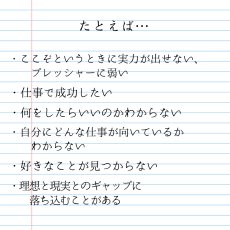 たとえば・・・
・ここぞというときに実力が出せない、
プレッシャーに弱い
・仕事で成功したい
・何をしたらいいのかわからない
・自分にどんな仕事が向いているか
わからない
・好きなことが見つからない
・理想と現実とのギャップに
落ち込むことがある